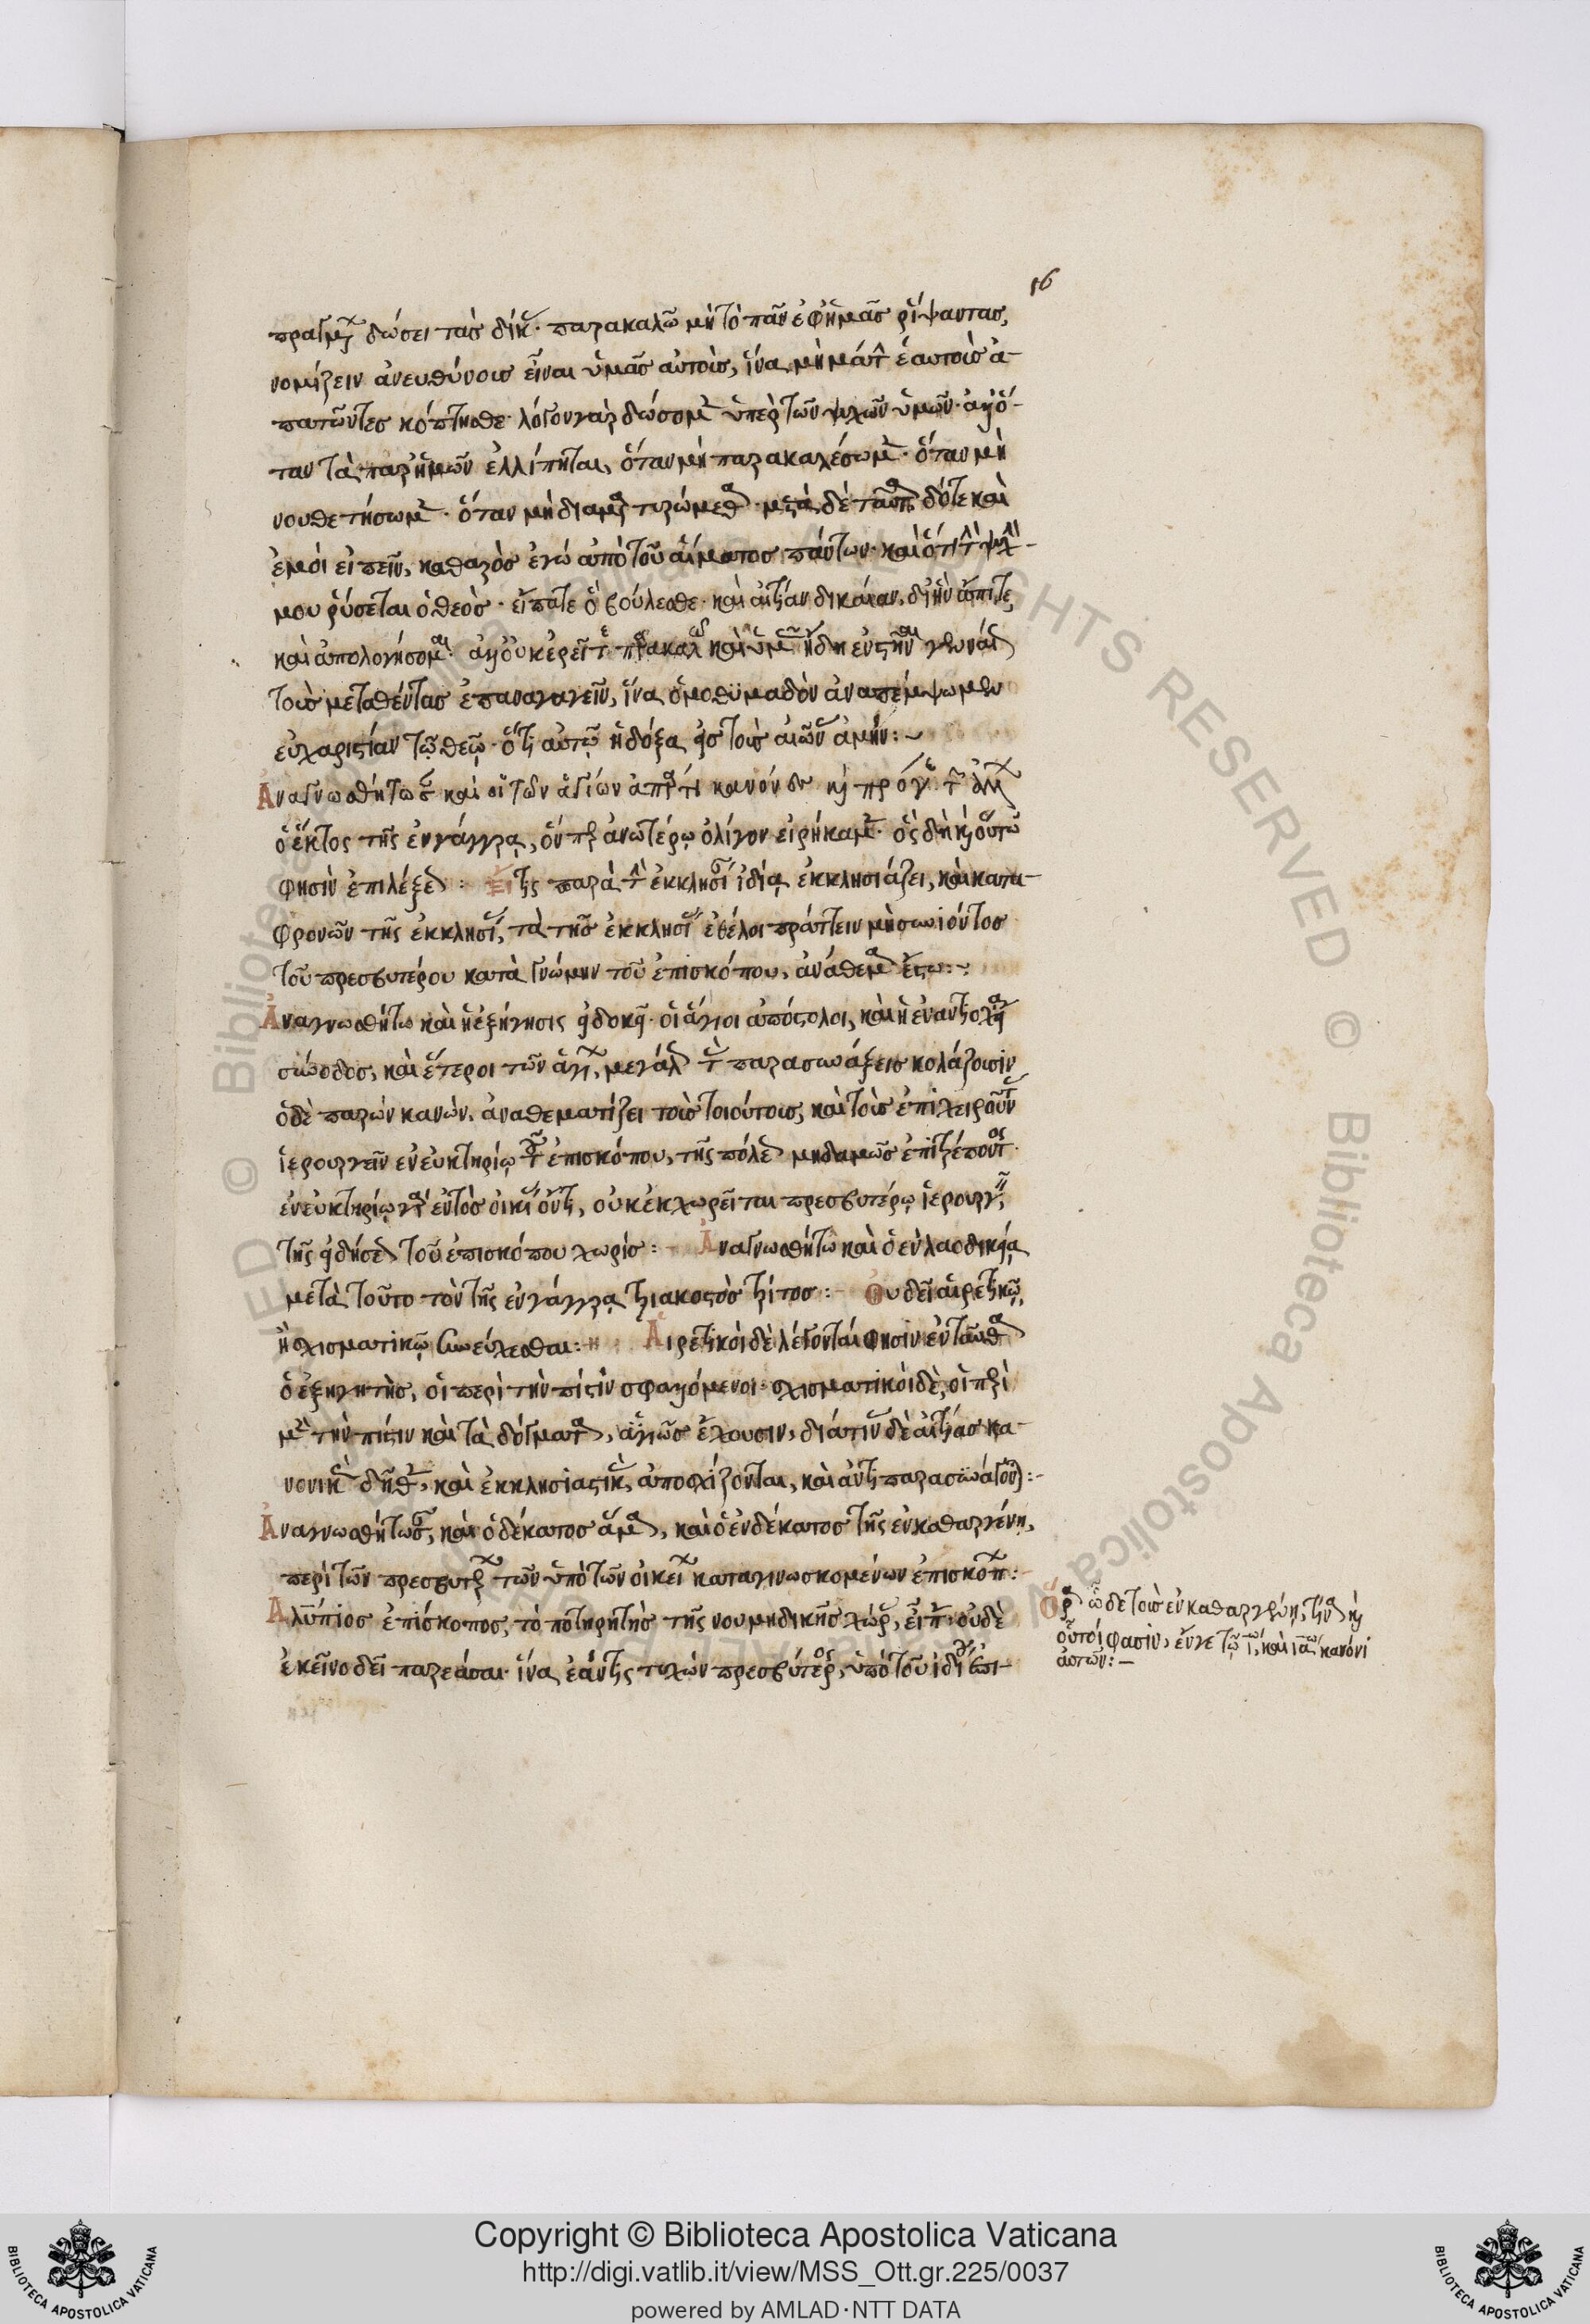 16
πραγμάτων δώσει τὰς δίκας· παρακαλῶ μὴ τὸ πᾶν ἐφ' ἡμᾶς ῥίψαντας,
νομίζειν ἀνευθύνους εἶναι ὑμᾶς αὐτοὺς, ἵνα μὴ μάτην ἑαυτοὺς ἀ-
πατῶντες κόπτησθε· λόγον γὰρ δώσομεν ὑπὲρ τῶν ψυχῶν ὑμῶν· ἀλλ' ὅ-
ταν τὰ παρ' ἡμῶν ἐλλίπηται, ὅταν μὴ παρακαλέσωμεν· ὅταν μὴ
νουθετήσωμεν· ὅταν μὴ διαμαρτυρώμεθα· μετὰ δὲ ταῦτα δότε καὶ
ἐμοὶ εἰπεῖν, καθαρὸς ἐγὼ ἀπὸ τοῦ αἵματος πάντων· καὶ ὅτι τὴν ψυχήν
μου ῥύσεται ὁ θεός· εἴπατε ὃ βούλεσθε· καὶ αἰτίαν δικαίαν, δι' ἣν ἄπιτε,
καὶ ἀπολογήσομαι· ἀλλ' οὐκ ἐρεῖτε
τοὺς μεταθέντας ἐπαναγαγεῖν, ἵνα ὁμοθυμαδὸν ἀναπέμψωμεν
εὐχαριστίαν τῷ θεῷ· ὅτι αὐτῷ ἡ δόξα εἰς τοὺς αἰῶνας ἀμήν:
Ἀναγνωσθήτωσαν καὶ οἱ τῶν ἁγίων
ὁ ἕκτος τῆς ἐν γάγγρα, ὅνπερ ἀνωτέρω ὀλίγον εἰρήκαμεν· ὃς δὴ καὶ οὕτω
φησὶν ἐπιλέξεως: Εἴ τις παρὰ τὴν ἐκκλησίαν ἰδίᾳ ἐκκλησιάζει, καὶ κατα-
φρονῶν τῆς ἐκκλησίας, τὰ τῆς ἐκκλησίας ἐθέλοι πράττειν μὴ συνιόντος
τοῦ πρεσβυτέρου κατὰ γνώμην τοῦ ἐπισκόπου, ἀνάθεμα ἔστω:
Ἀναγνωσθήτω καὶ ἡ ἐξήγησις οἱ ἅγιοι ἀπόστολοι, καὶ ἡ ἐν ἀντιοχείᾳ
σύνοδος, καὶ ἕτεροι τῶν ἁγίων, μεγάλως τὰς παρασυνάξεις κολάζουσιν
ὁ δὲ παρὼν κανὼν, ἀναθεματίζει τοὺς τοιούτους, καὶ τοὺς ἐπιχειροῦντας
ἱερουργεῖν ἐν εὐκτηρίῳ τοῦ ἐπισκόπου, τῆς πόλεως μηδαμῶς ἐπιτρέποντος·
ἐν εὐκτηρίῳ γὰρ ἐντὸς οἰκίας ὄντι, οὐκ ἐκχωρεῖται πρεσβυτέρῳ ἱερουργεῖν,
τῆς εἰδήσεως τοῦ ἐπισκόπου χωρίς: Ἀναγνωσθήτω καὶ ὁ ἐν λαοδικείᾳ
μετὰ τοῦτο τὸν τῆς ἐν γάγγρα τριακοστὸς τρίτος: Οὐ δεῖ αἱρετικῷ,
ἢ σχισματικῷ συνεύχεσθαι: Αἱρετικοὶ δὲ λέγονταί φησιν ἐνταῦθα
ὁ ἐξηγητὴς, οἱ περὶ τὴν πίστιν σφαλλόμενοι· σχισματικοὶ δὲ, οἱ περὶ
μὲν τὴν πίστιν καὶ τὰ δόγματα, ὑγιῶς ἔχουσιν, διά τινας δὲ αἰτίας κα-
νονικὰς δῆθεν, καὶ ἐκκλησιαστικὰς, ἀποσχίζονται, καὶ ἀντιπαρασυνάγουσι:
Ἀναγνωσθήτωσαν, καὶ ὁ δέκατος ἅμα, καὶ ὁ ἑνδέκατος τῆς ἐν καθαργένη,
περὶ τῶν πρεσβυτέρων τῶν ὑπὸ τῶν οἰκείων καταγινωσκομένων ἐπισκόπων:
Ἀλύπιος ἐπίσκοπος, τῆς νουμηδικῆς χώρας, εἶπεν: οὐδὲ
ἐκεῖνο δεῖ παρεάσαι· ἵνα ἐάν τις τυχὸν πρεσβύτερος, ὑπὸ τοῦ ἰδίου ἐπι-
Ὅρα ὧδε τοὺς ἐν καθαργένῃ, τίνα καὶ
οὗτοί φασιν, ἔν γε τῷ ι, καὶ ια κανόνι
αὐτῶν:
Copyright © Biblioteca Apostolica Vaticana
http://digi.vatlib.it/view/MSS_Ott.gr.225/0037
powered by AMLAD·NTT DATA
BIBLIOTECA APOSTOLICA VATICANA
BIBLIOTECA APOSTOLICA VATICANA